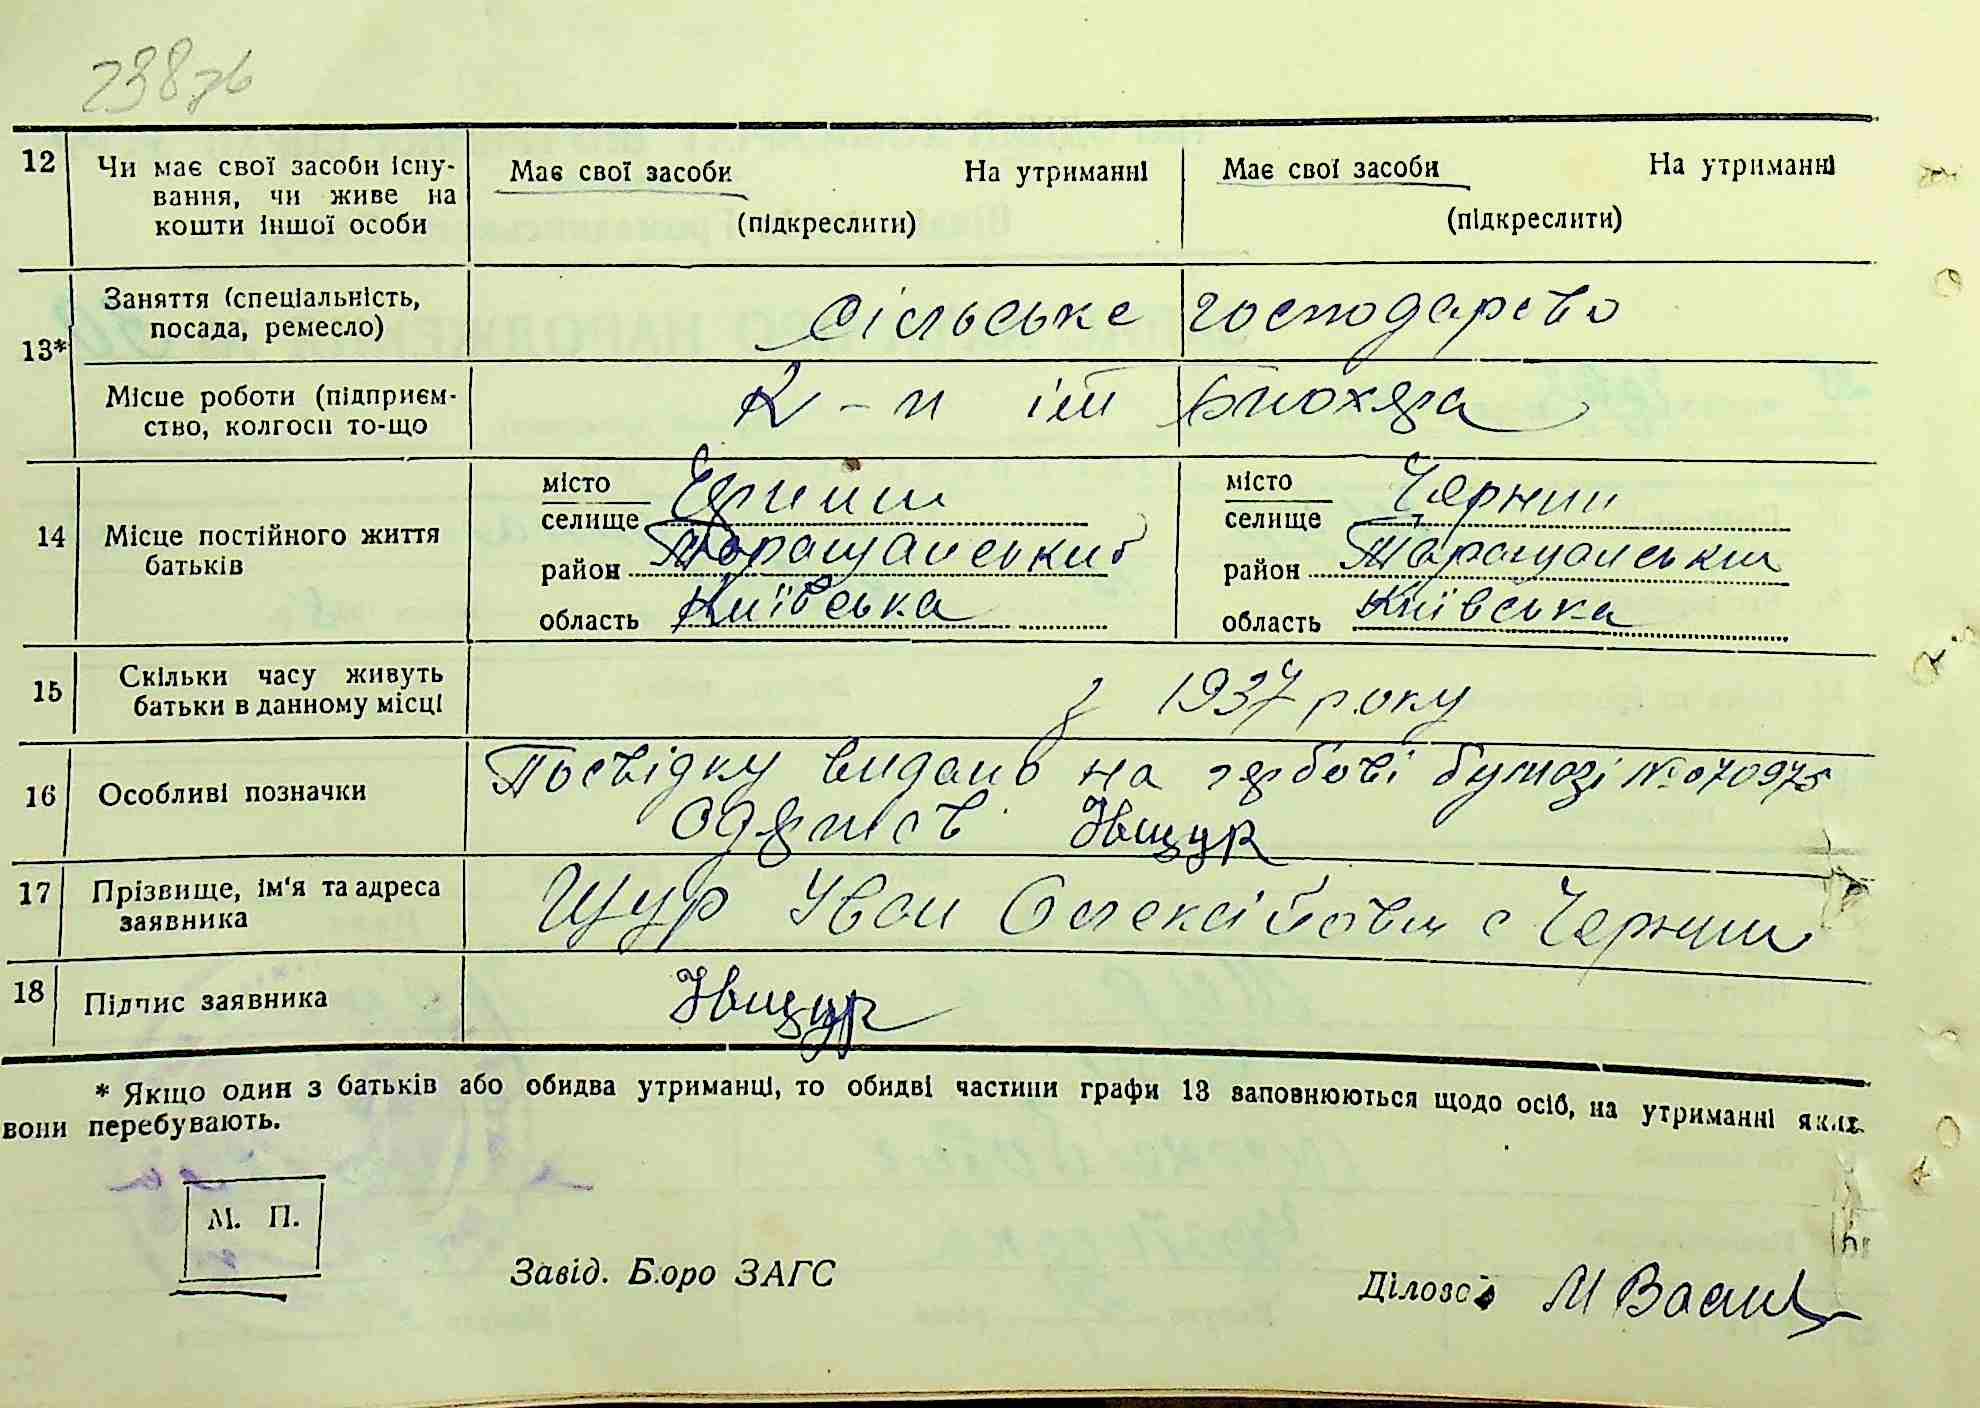 238зв
12 Чи має свої засоби існу- Має свої засоби На утриманні Має свої засоби На утриманні
вання, чи живе на
кошти іншої особи (підкреслити) (підкреслити)
13* Заняття (спеціальність, сільське господарство
посада, ремесло)
Місце роботи (підприєм- К-п ім Блюхера
ство, колгосп то-що
14 Місце постійного життя
батьків
місто
селище місто
селище Чернин
район Таращанський район Таращанськи
область Київська область Київська
15 Скільки часу живуть з 1937 року
батьки в данному місці
16 Особливі позначки Посвідку видано на гербові бумазі № 070975
одержав Івщур
17 Прізвище, ім'я та адреса Щур Іван Олексійович с Чернин
заявника
18 Підпис заявника Івщур
* Якщо один з батьків або обидва утриманці, то обидві частини графи 13 заповнюються щодо осіб, на утриманні яких
вони перебувають.
М. П.
Завід. Бюро ЗАГС Ділово М